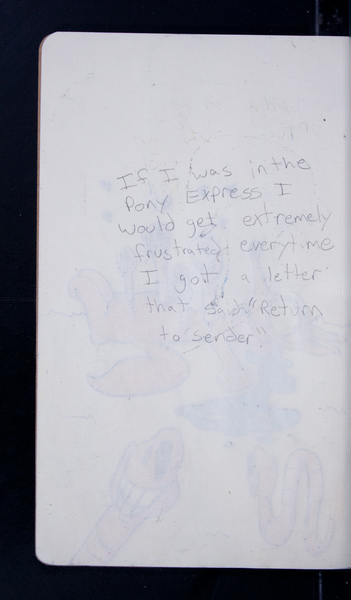 If I was in the
Pony Express I
would get extremely
frustrated everytime
I got a letter
that said "Return
to sender."